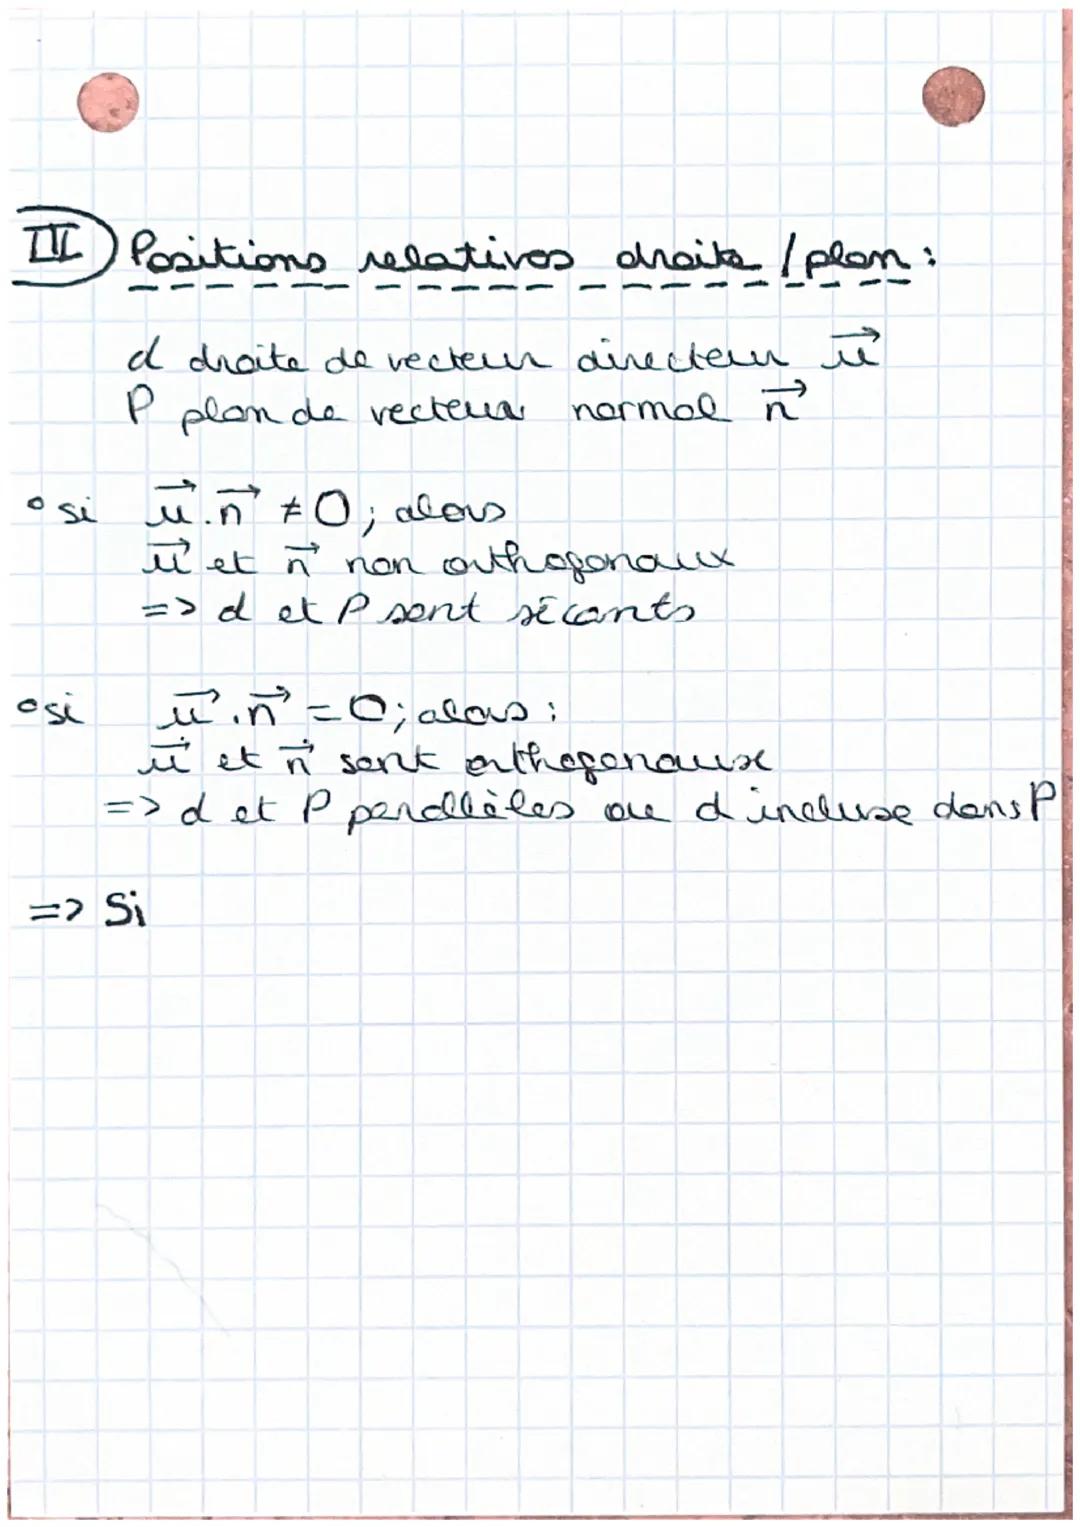 III) Positions relatives droite / plan :
d droite de vecteur directeur u⃗
P plan de vecteur normal n⃗
° si u⃗.n⃗ ≠ 0 ; alors
u⃗ et n⃗ non orthogonaux
=> d et P sont sécants
° si u⃗.n⃗ = 0 ; alors :
u⃗ et n⃗ sont orthogonaux
=> d et P parallèles ou d incluse dans P
=> Si